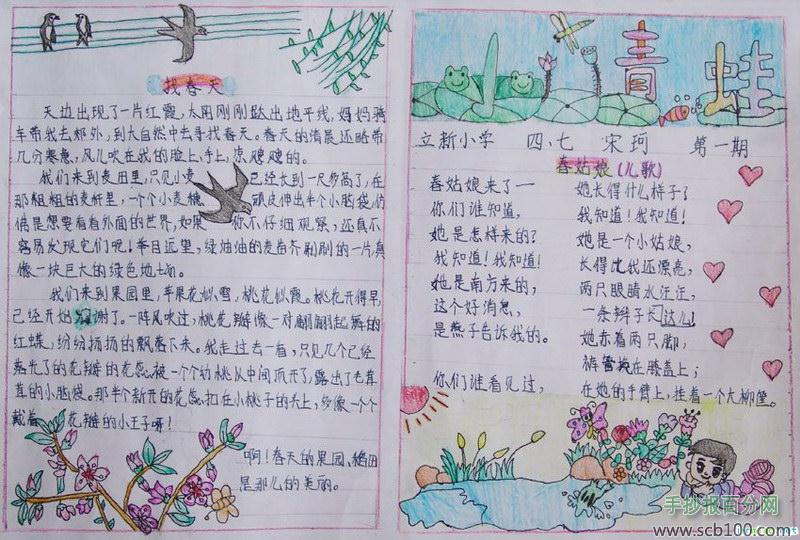 找春天
天边出现了一片红霞，太阳刚刚跃出地平线，妈妈骑
车带我去郊外，到大自然中去寻找春天。春天的清晨还略带
几分寒意，风儿吹在我的脸上，手上，凉飕飕的。
我们来到麦田里，只见小麦已经长到一尺多高了，在
那粗粗的麦杆里，一个个小麦穗顽皮伸出半个小脑袋，仿
偶是想要看看外面的世界，如果你不仔细观察，还真不
容易发现它们呢！举目远望，绿油油的麦苗齐刷刷的一片，真
像一块巨大的绿色地毯。
我们来到果园里，苹果花似雪，桃花似霞。桃花开得早，
已经开始谢了。一阵风吹过，桃花瓣像一对翩翩起舞的
红蝶，纷纷扬扬的飘落下来。我走过去一看，只见几个已经
落光了的花瓣的花蕊，被一个个幼桃从中间顶开了，露出了毛茸
茸的小脑袋。那半个新开的花蕊，扣在小桃子的头上，多像一个个
戴着花瓣的小王子呀！
啊！春天的果园、稻田
是那儿的美丽。
青蛙
立新小学 四、七 宋珂 第一期
春姑娘（儿歌）
春姑娘来了一
你们谁知道，
她是怎样来的？
我知道！我知道！
她是南方来的，
这个好消息，
是燕子告诉我的。
你们谁看见过，
她长得什么样子？
我知道！我知道！
她是一个小姑娘，
长得比我还漂亮，
两只眼睛水汪汪，
一条辫子长这儿！
她赤着两只脚，
裤管挽在膝盖上；
在她的手臂上，挂着一个大柳筐。
手抄报百分网
www.scb100.com